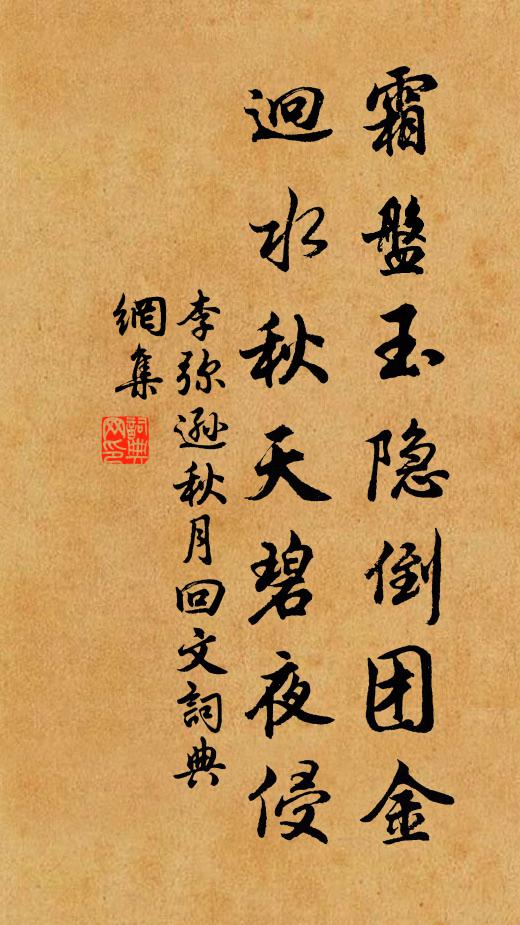 霜盤玉隐倒团金
迴水秋天碧夜侵
李弥遜秋月回文詞典
網集
詞典
网印